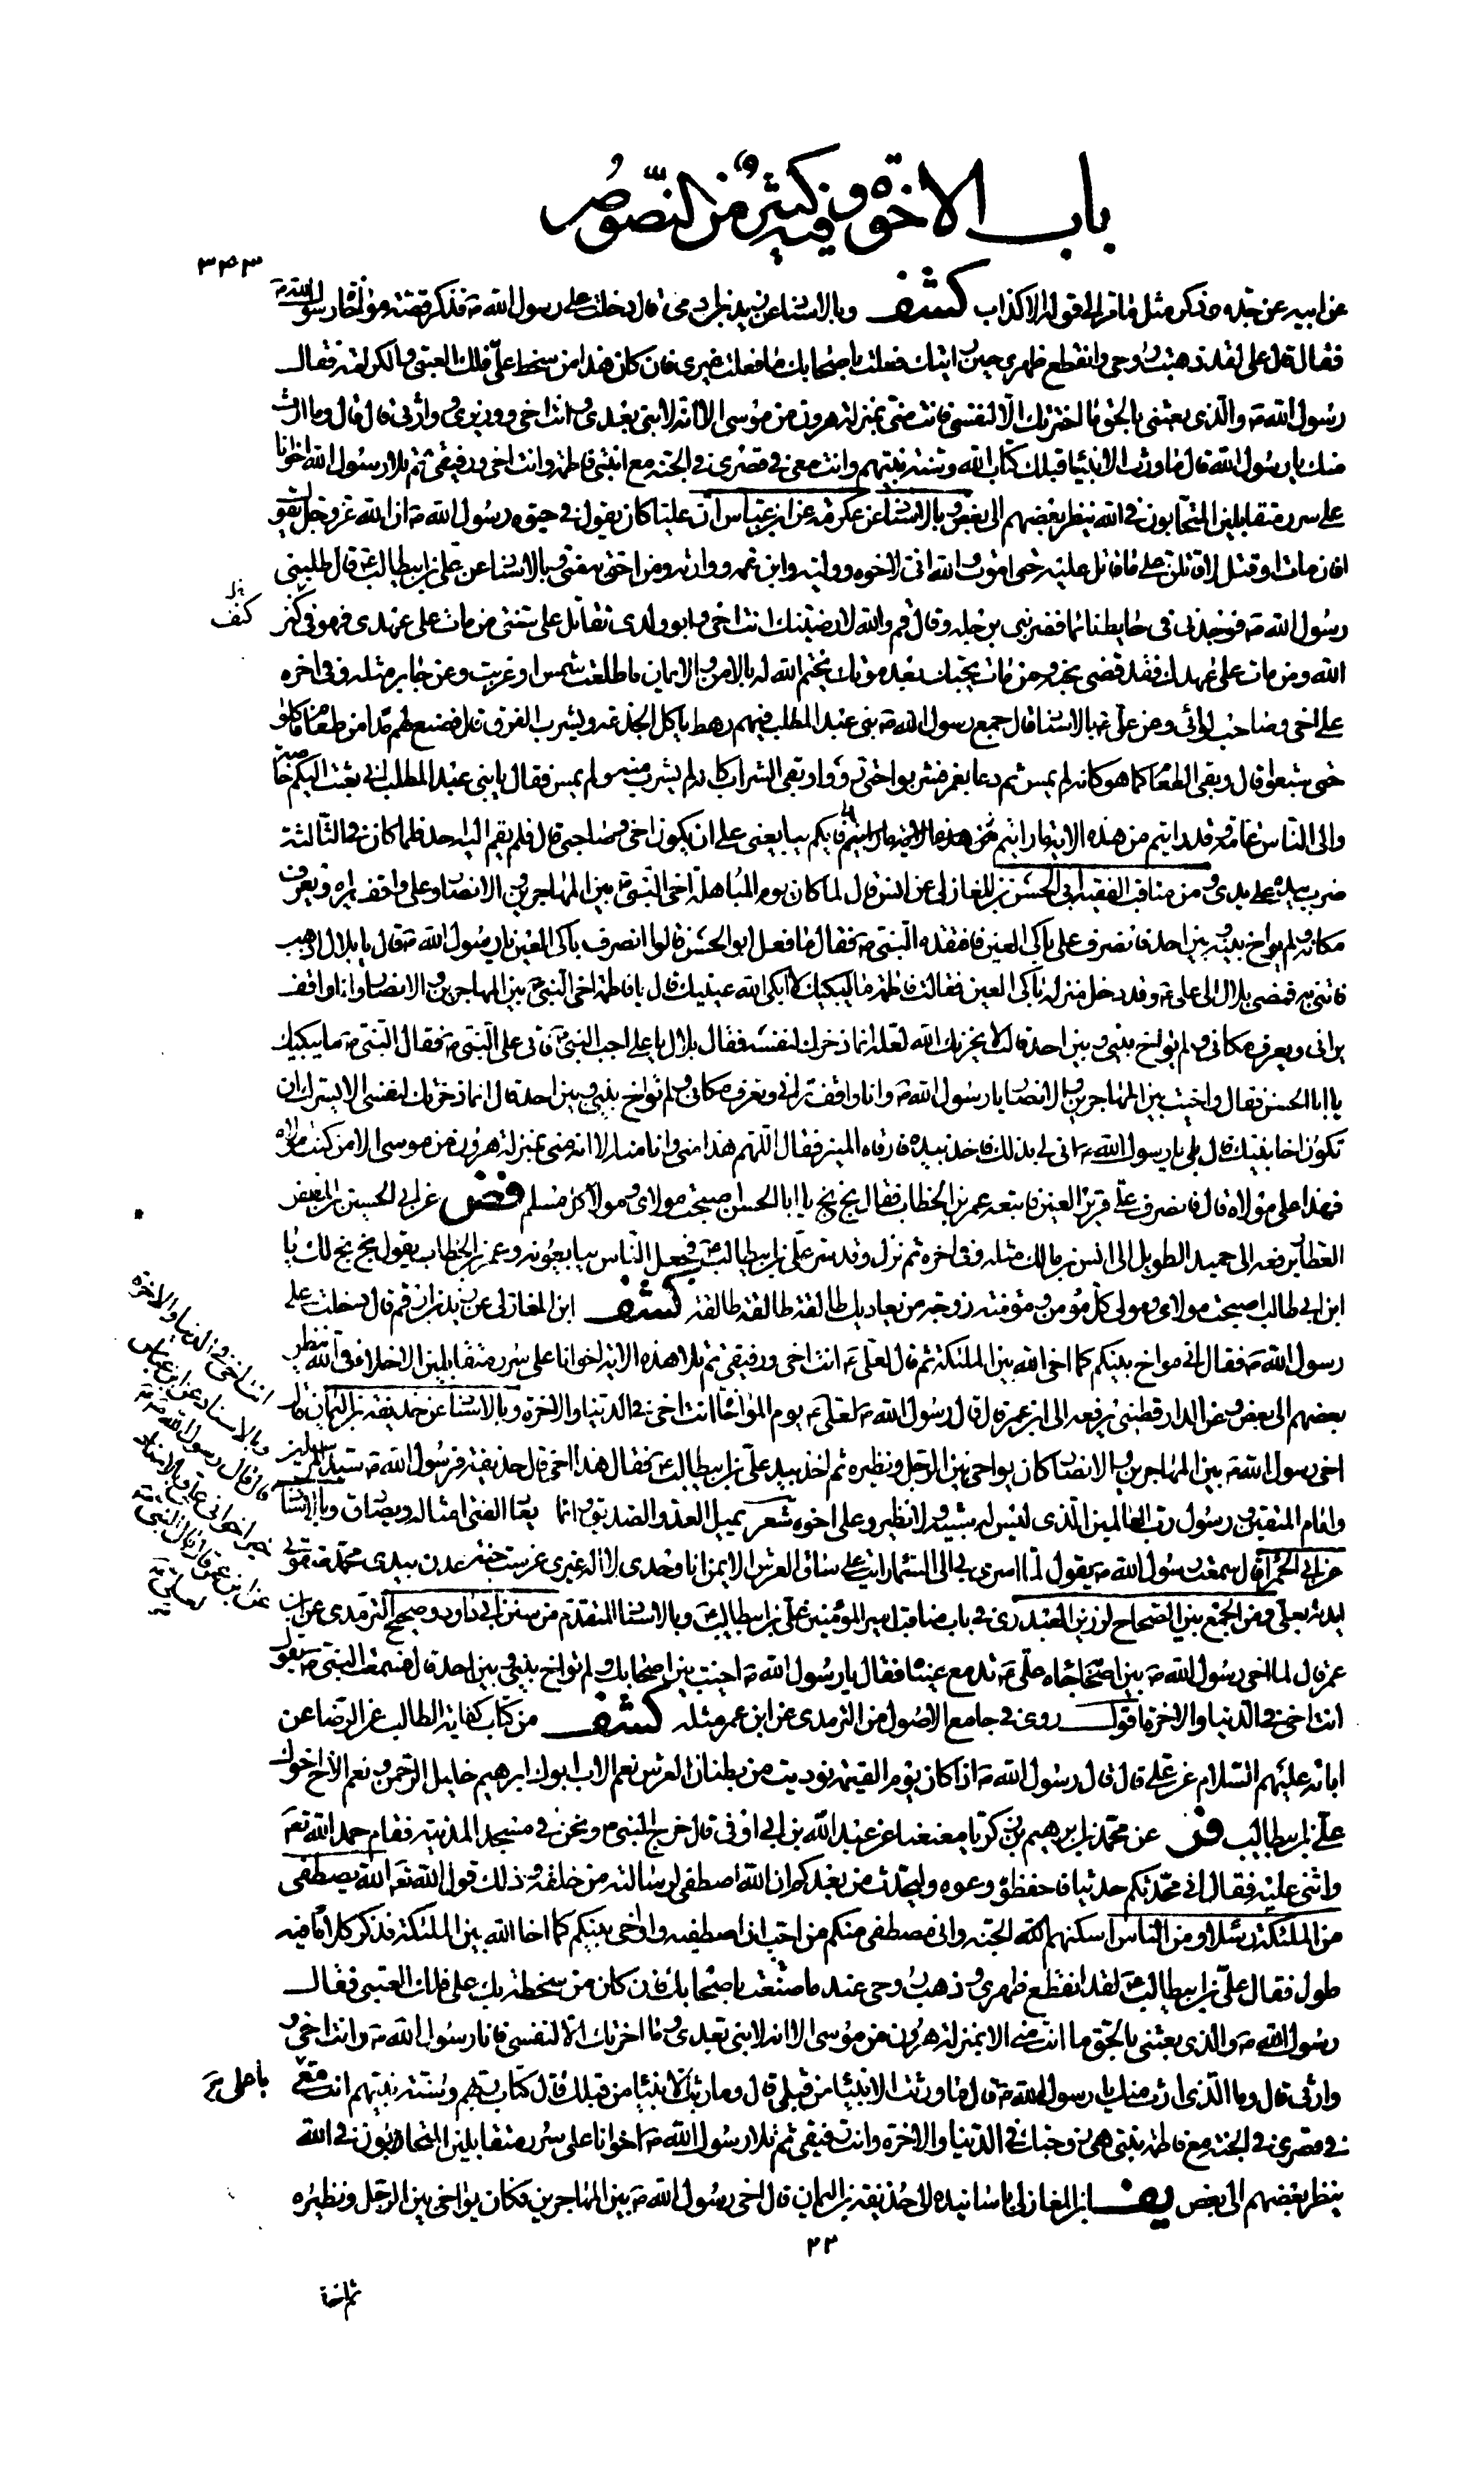 باب الاخوة وفيه كثير من النصوص
٣٤٣
عن ابيه عن جده وذكر مثل ما مر الى قوله الا كذاب كشف وبالاسناد عن زيد بن ابى اوفى قال دخلت على رسول الله ص فذكر قصة مواخاة رسول الله ص
فقال على لقد ذهبت روحى وانقطع ظهرى حين رايتك فعلت باصحابك ما فعلت غيرى فان كان هذا من سخط على فلك العتبى والكرامة فقال
رسول الله ص والذى بعثنى بالحق ما اخترتك الا لنفسى فانت منى بمنزلة هرون من موسى الا انه لا نبى بعدى وانت اخى ووزيرى ووارثى قال قال وما ارث
منك يا رسول الله قال ما ورث الانبياء قبلك كتاب الله وسنة نبيهم وانت معى فى قصرى فى الجنة مع ابنتى فاطمة وانت اخى ورفيقى ثم تلا رسول الله اخوانا
على سرر متقابلين المتحابون فى الله ينظر بعضهم الى بعض وبالاسناد عن عكرمة عن ابن عباس ان عليا كان يقول فى حيوة رسول الله ص ان الله عز وجل يقول
افان مات او قتل لاقاتلن على ما قاتل عليه حتى اموت والله انى لاخوه ووليه وابن عمه ووارثه ومن احق به منى وبالاسناد عن على بن ابيطالب ع قال طلبنى
رسول الله ص فوجدنى فى حايط نائما فضربنى برجله وقال قم والله لارضينك انت اخى وابو ولدى تقاتل على سنتى من مات على عهدى فهو فى كنز
كنف
الله ومن مات على عهدك فقد قضى نحبه ومن مات يحبك بعد موتك يختم الله له بالامن والايمان ما طلعت شمس او غربت وعن جابر مثله وفى اخره
على اخى وصاحب لوائى وعن على ع بالاسناد قال جمع رسول الله ص بنى عبد المطلب فيهم رهط ياكل الجذعة ويشرب الفرق قال فصنع لهم مدا من طعام فاكلوا
حتى شبعوا قال وبقى الطعام كما هو كانه لم يمس ثم دعا بغمر فشربوا حتى رووا وبقى الشراب كانه لم يشرب منه ولم يمس فقال يا بنى عبد المطلب انى بعثت اليكم خاصة
والى الناس عامة وقد رايتم من هذه الاية ما رايتم فايكم يبايعنى على ان يكون اخى وصاحبى قال فلم يقم اليه احد فلما كان فى الثالثة
ضرب بيده على يدى ومن مناقب الفقيه ابى الحسن بن المغازلى عن انس قال لما كان يوم المباهلة اخى النبى ص بين المهاجرين والانصار وعلى واقف يراه ويعرف
مكانه ولم يواخ بينه وبين احد فانصرف على باكى العين فافتقده النبى ص فقال ما فعل ابو الحسن قالوا انصرف باكى العين يا رسول الله ص قال يا بلال اذهب
فاتنى به فمضى بلال الى على ع وقد دخل منزله باكى العين فقالت فاطمة ما يبكيك لا ابكى الله عينيك قال يا فاطمة اخى النبى ص بين المهاجرين والانصار وانا واقف
يرانى ويعرف مكانى ولم يواخ بينى وبين احد قالت لا يحزنك الله لعله انما ذخرك لنفسه فقال بلال يا على اجب النبى ص فاتى على النبى ص فقال النبى ص ما يبكيك
يا ابا الحسن فقال واخيت بين المهاجرين والانصار يا رسول الله ص وانا واقف ترانى وتعرف مكانى ولم تواخ بينى وبين احد قال انما ذخرتك لنفسى الا يسرك ان
تكون اخا نبيك قال بلى يا رسول الله ص انى لى بذلك فاخذ بيده فارقاه المنبر فقال اللهم هذا منى وانا منه الا انه منى بمنزلة هرون من موسى الا من كنت مولاه
فهذا على مولاه قال فانصرف على قرير العين فاتبعه عمر بن الخطاب فقال بخ بخ يا ابا الحسن اصبحت مولاى ومولا كل مسلم فض عن ابى الحسين بن المظفر
العطار يرفعه الى حميد الطويل الى انس بن مالك مثله وفى اخره ثم نزل وقد سر على بن ابيطالب ع فجعل الناس يبايعونه وعمر بن الخطاب يقول بخ بخ لك يا
ابن ابى طالب اصبحت مولاى ومولى كل مؤمن ومؤمنة زوجة من يعاديك طالقة طالقة طالقة كشف ابن المغازلى عن زيد بن ارقم قال دخلت على
رسول الله ص فقال انى مواخ بينكم كما اخى الله بين الملئكة ثم قال لعلى ع انت اخى ورفيقى ثم تلا هذه الاية اخوانا على سرر متقابلين الاخلاء فى الله ينظر
بعضهم الى بعض وعن الدارقطنى يرفعه الى ابن عمر قال قال رسول الله ص لعلى ع يوم المواخاة انت اخى فى الدنيا والاخرة وبالاسناد عن حذيفة بن اليمان قال
اخى رسول الله ص بين المهاجرين والانصار كان يواخى بين الرجل ونظيره ثم اخذ بيد على بن ابيطالب ع فقال هذا اخى قال حذيفة فرسول الله ص سيد المرسلين
وامام المتقين ورسول رب العالمين الذى ليس له شبيه ولا نظير وعلى اخوه شعر
عن ابى الحمراء قال سمعت رسول الله ص يقول لما اسرى بى الى السماء رايت على ساق العرش الايمن انا وحدى لا اله غيرى غرست جنة عدن بيدى محمد صفوتى
ايدته بعلى ومن الجمع بين الصحاح لرزين العبدرى فى باب مناقب امير المؤمنين على بن ابيطالب ع وبالاسناد المتقدم من سنن ابى داود وصحيح الترمدى عن ابن
عمر قال لما اخى رسول الله ص بين اصحابه جاءه على ع تدمع عيناه فقال يا رسول الله ص اخيت بين اصحابك ولم تواخ بينى وبين احد قال فسمعت النبى ص يقول
انت اخى فى الدنيا والاخرة اقول روى فى جامع الاصول من الترمدى عن ابن عمر مثله كشف من كتاب كفاية الطالب عن الرضا عن
ابائه عليهم السلام عن على قال قال رسول الله ص اذا كان يوم القيمة نوديت من بطنان العرش نعم الاب ابوك ابرهيم خليل الرحمن ونعم الاخ اخوك
على بن ابيطالب فر عن محمد بن ابرهيم بن زكريا معنعنا عن عبد الله بن ابى اوفى قال خرج النبى ص ونحن فى مسجد المدينة فقام حمد الله تعم
واثنى عليه فقال انى محدثكم حديثا فاحفظوه وعوه وليحدث من بعدكم ان الله اصطفى لرسالته من خلقه وذلك قول الله تعم الله يصطفى
من الملئكة رسلا ومن الناس اسكنهم الله الجنة وانى مصطفى منكم من احب ان اصطفيه واواخى بينكم كما اخا الله بين الملئكة فذكر كلاما فيه
طول فقال على بن ابيطالب ع لقد انقطع ظهرى وذهب روحى عند ما صنعت باصحابك فان كان من سخطة بك على فلك العتبى فقال
رسول الله ص والذى بعثنى بالحق ما انت منى الا بمنزلة هرون من موسى الا انه لا نبى بعدى وما اخرتك الا لنفسى فانا رسول الله ص وانت اخى و
وارثى قال وما الذى ارث منك يا رسول الله ص قال ما ورثت الانبياء من قبلى قال وما ورثت الانبياء من قبلك قال كتاب ربهم وسنة نبيهم انت معى
يا على ع
فى قصرى فى الجنة مع فاطمة بنتى هى زوجتك فى الدنيا والاخرة وانت رفيقى ثم تلا رسول الله ص اخوانا على سرر متقابلين المتحابون فى الله
ينظر بعضهم الى بعض يف ابن المغازلى باسانيده الى حذيفة بن اليمان قال اخى رسول الله ص بين المهاجرين فكان يواخى بين الرجل ونظيره
انت اخى فى الدنيا والاخرة
وبالاسناد عن ابن عباس
قال قال رسول الله ص
خير اخوانى على وبالاسناد
عن ابن عمر قال قال النبى ص
لعلى ع
٢٣
ثم اخذ